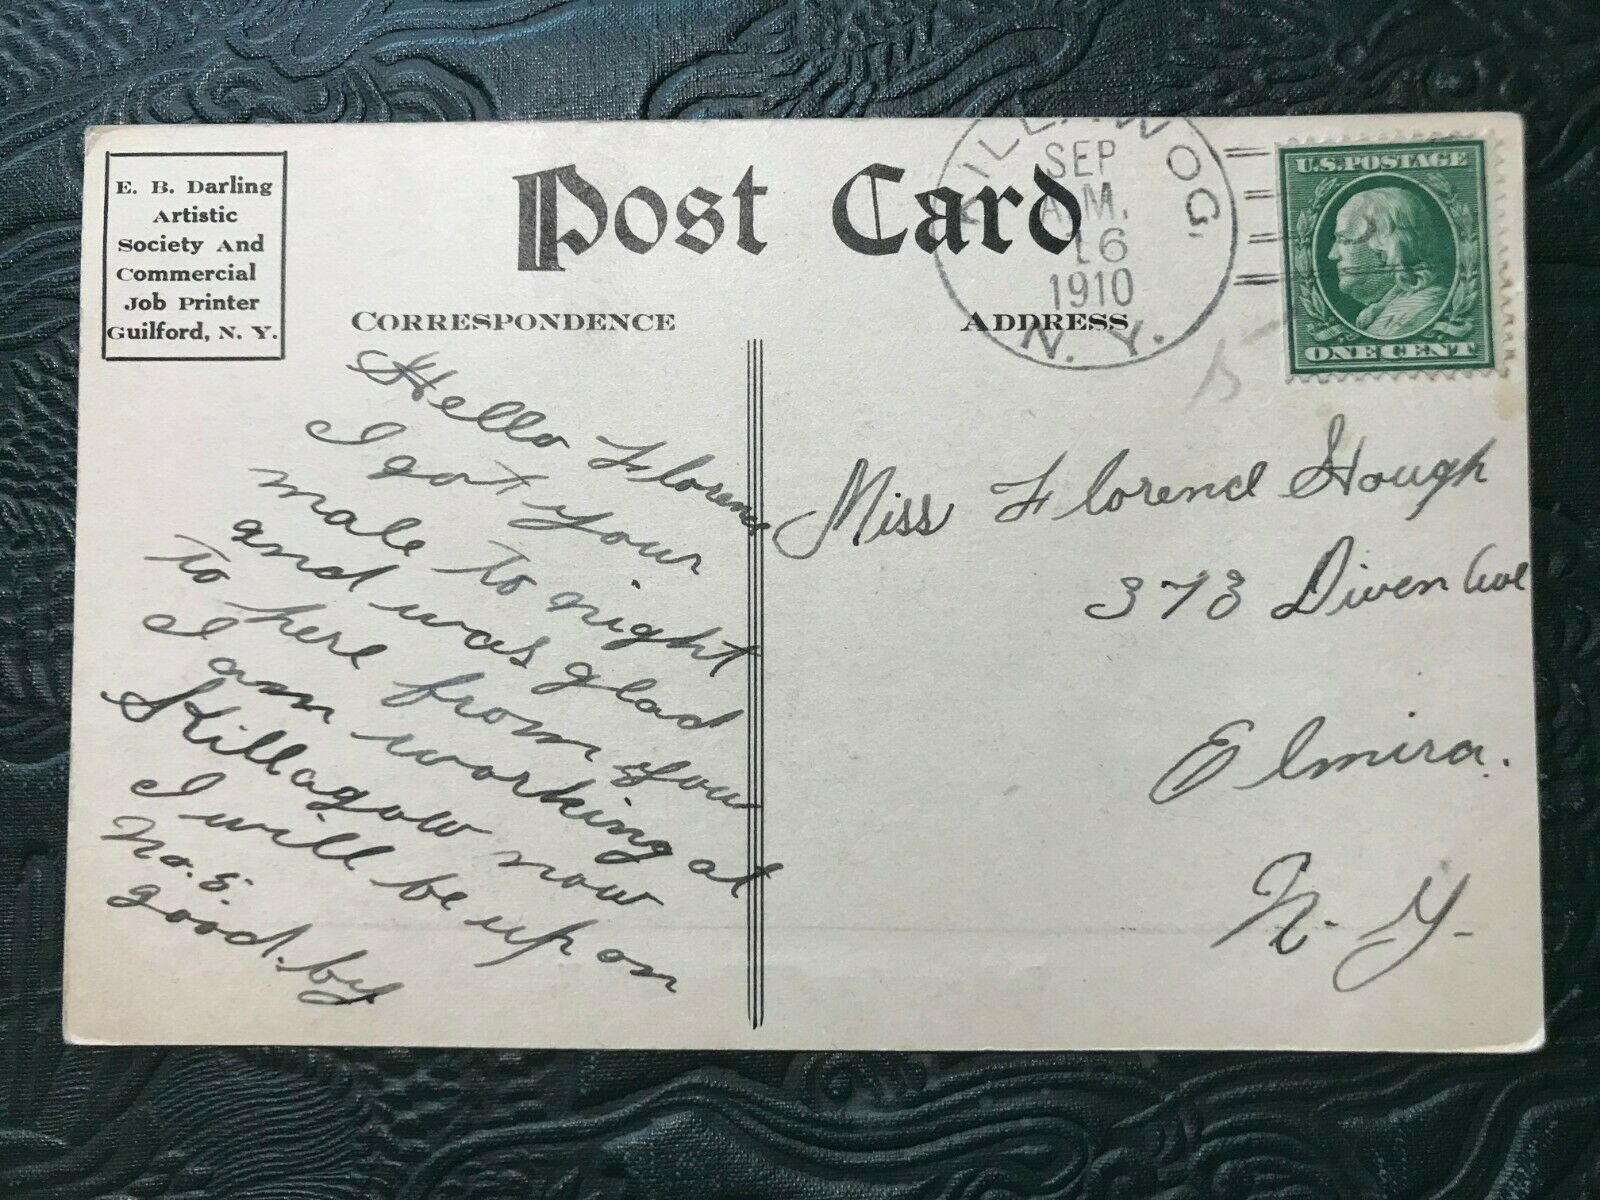 E. B. Darling
Artistic
Society And
Commercial
Job Printer
Guilford, N. Y.
Post Card
CORRESPONDENCE
ADDRESS
KILLAWOG,
SEP
A.M.
16
1910
N. Y.
U.S. POSTAGE
ONE CENT
Hello Florence
I got your
male to night
and was glad
to here from you
I am working at
Killagow now
I will be up on
no. 5.
good.by
Miss Florence Hough
373 Diven Ave
Elmira.
N. Y.